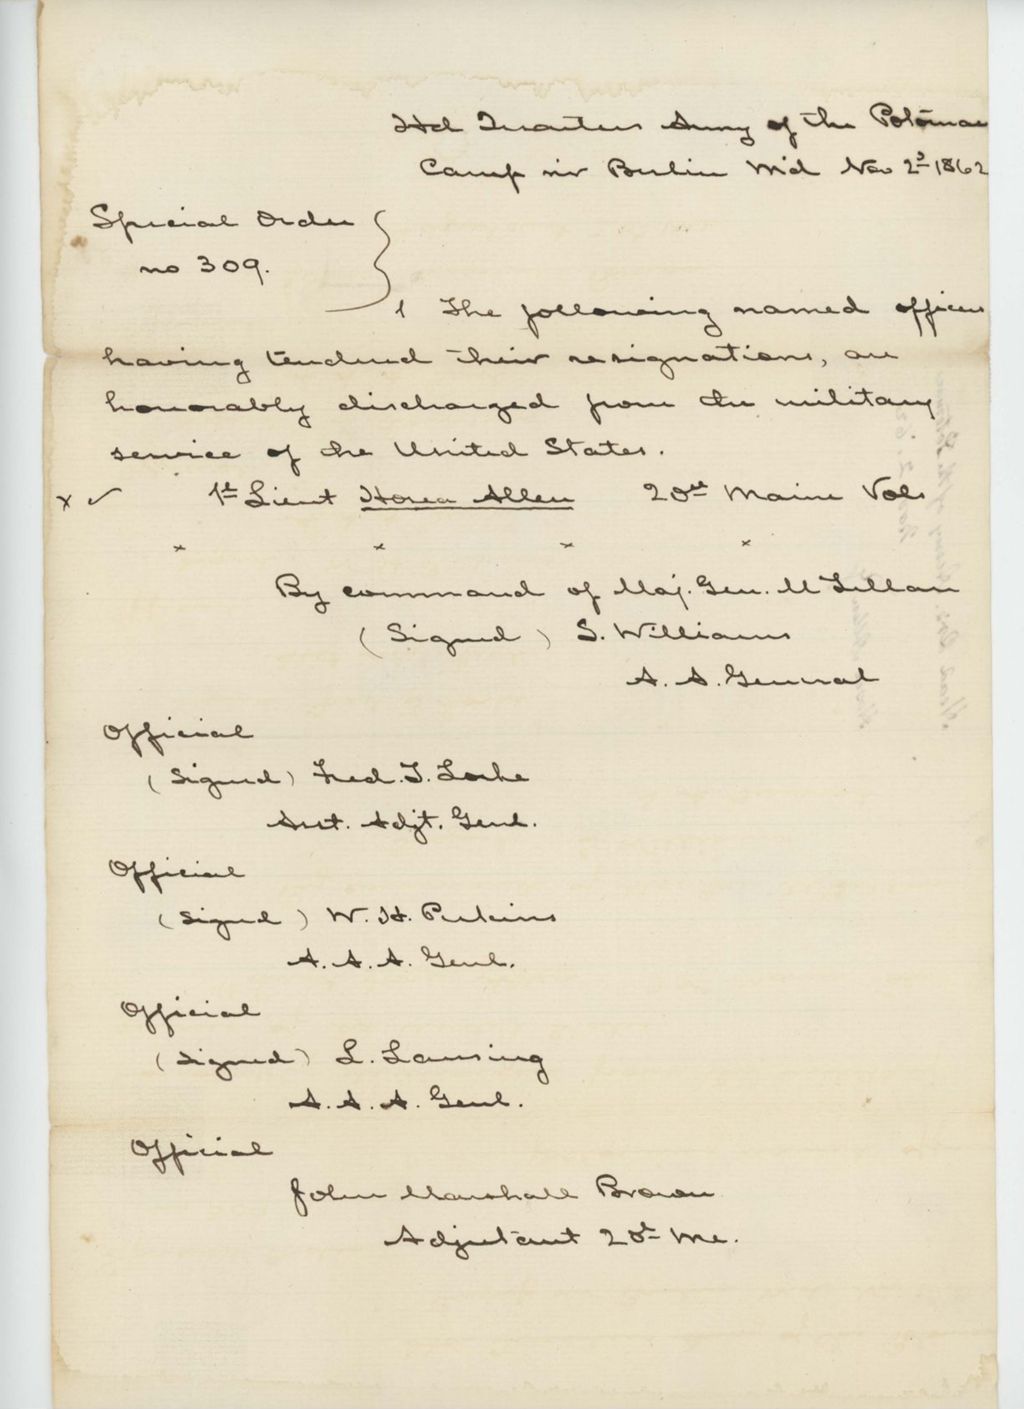 Hd Quarters Army of the Potomac
Camp nr Berlin Md Nov 2d 1862
Special Order
no 309.
1 The following named officers
having tendered their resignations, are
honorably discharged from the military
service of the United States.
x ✓ 1st Lieut Hosea Allen 20th Maine Vols
x x x x
By command of Maj. Gen. McLellan
(Signed) S. Williams
A. A. General
Official
(Signed) Fred. T. Locke
Asst. Adjt. Genl.
Official
(Signed) W. H. Perkins
A. A. A. Genl.
Official
(Signed) L. Lansing
A. A. A. Genl.
Official
John Marshall Brown
Adjutant 20th Me.